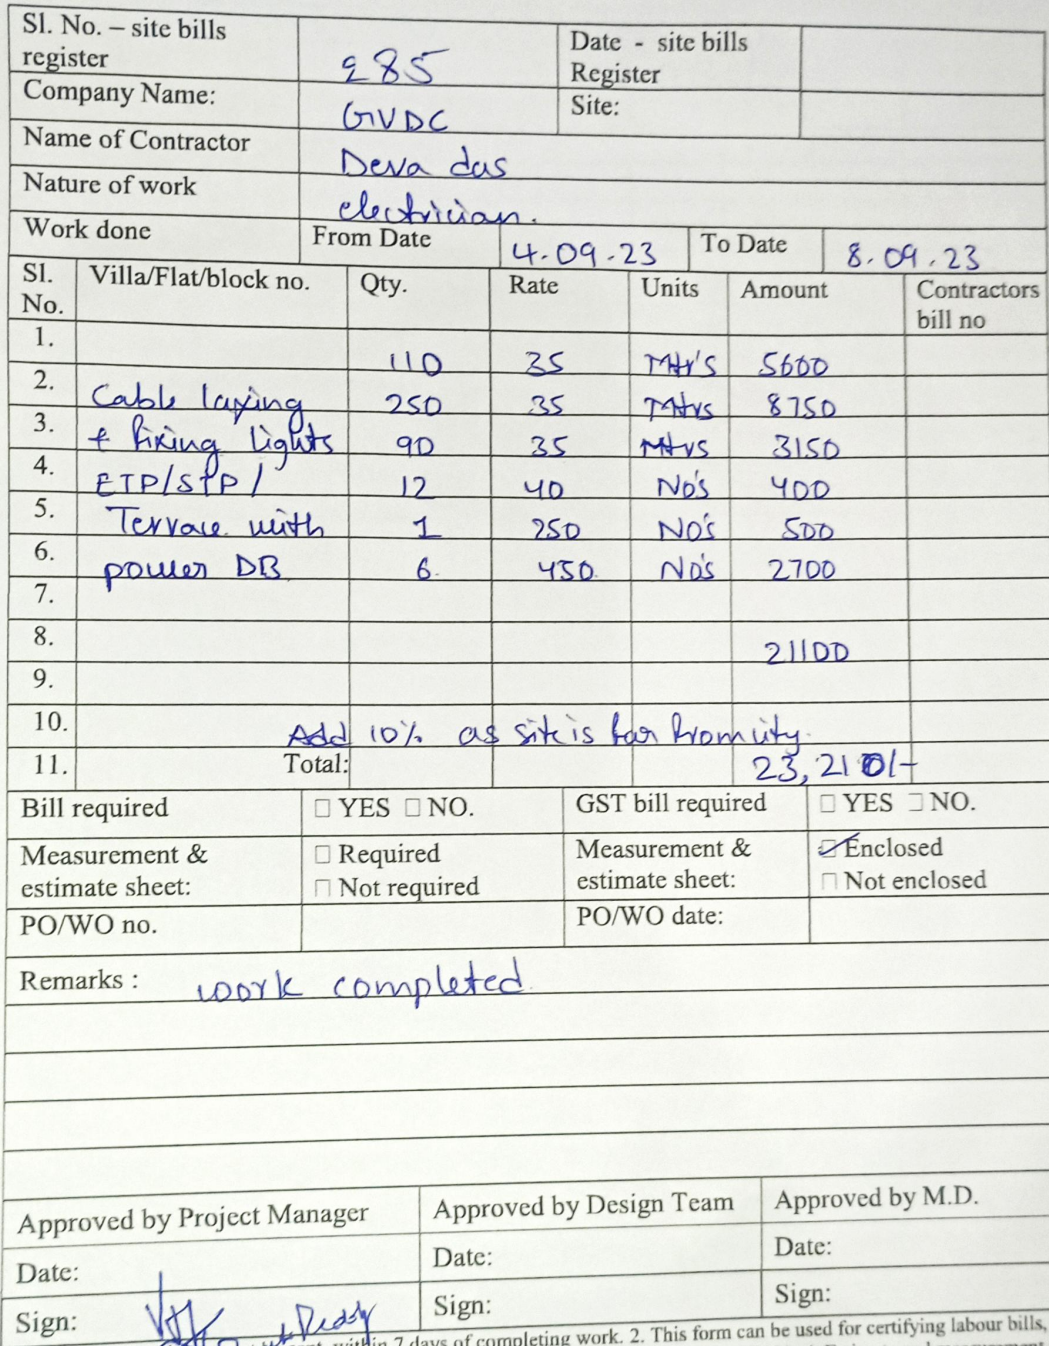 Sl. No. – site bills register 285 Date - site bills Register
Company Name: GVDC Site:
Name of Contractor Deva das
Nature of work electrician.
Work done From Date 4.09.23 To Date 8.09.23
Sl. No. Villa/Flat/block no. Qty. Rate Units Amount Contractors bill no
1. 110 35 Mtr's 5600
2. Cable laying 250 35 Mtrs 8750
3. + fixing lights 90 35 Mtrs 3150
4. ETP/STP/ 12 40 No's 400
5. Terrace with 1 250 NO's 500
6. power DB 6. 450. No's 2700
7.
8. 21100
9.
10. Add 10% as site is far from city.
11. Total: 23,210/-
Bill required □ YES □ NO. GST bill required □ YES □ NO.
Measurement & estimate sheet: □ Required □ Not required Measurement & estimate sheet: ☑ Enclosed □ Not enclosed
PO/WO no. PO/WO date:
Remarks : work completed.
Approved by Project Manager Approved by Design Team Approved by M.D.
Date: Date: Date:
Sign: Reddy Sign: Sign:
7 days of completing work. 2. This form can be used for certifying labour bills,